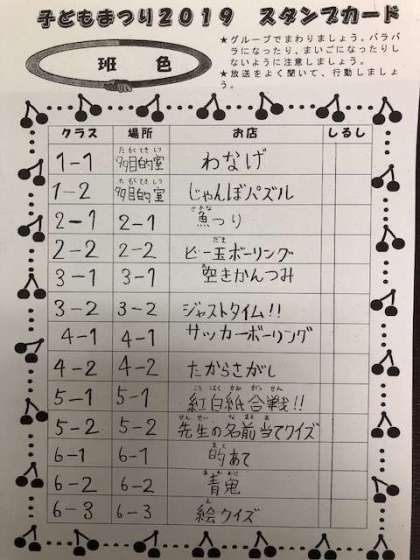 子どもまつり2019 スタンプカード
班 色
★グループでまわりましょう。バラバ
ラになったり、まいごになったりし
ないように注意しましょう。
★放送をよく聞いて、行動しましょ
う。
クラス 場所 お店 しるし
たもくてきしつ
1-1 多目的室 わなげ
たもくてきしつ
1-2 多目的室 じゃんぼパズル
さかな
2-1 2-1 魚つり
だま
2-2 2-2 ビー玉ボーリング
あ
3-1 3-1 空きかんつみ
3-2 3-2 ジャストタイム!!
4-1 4-1 サッカーボーリング
4-2 4-2 たからさがし
こうはくかみがっせん
5-1 5-1 紅白紙合戦!!
せんせい なまえあ
5-2 5-2 先生の名前当てクイズ
まと
6-1 6-1 的あて
あおおに
6-2 6-2 青鬼
え
6-3 6-3 絵クイズ